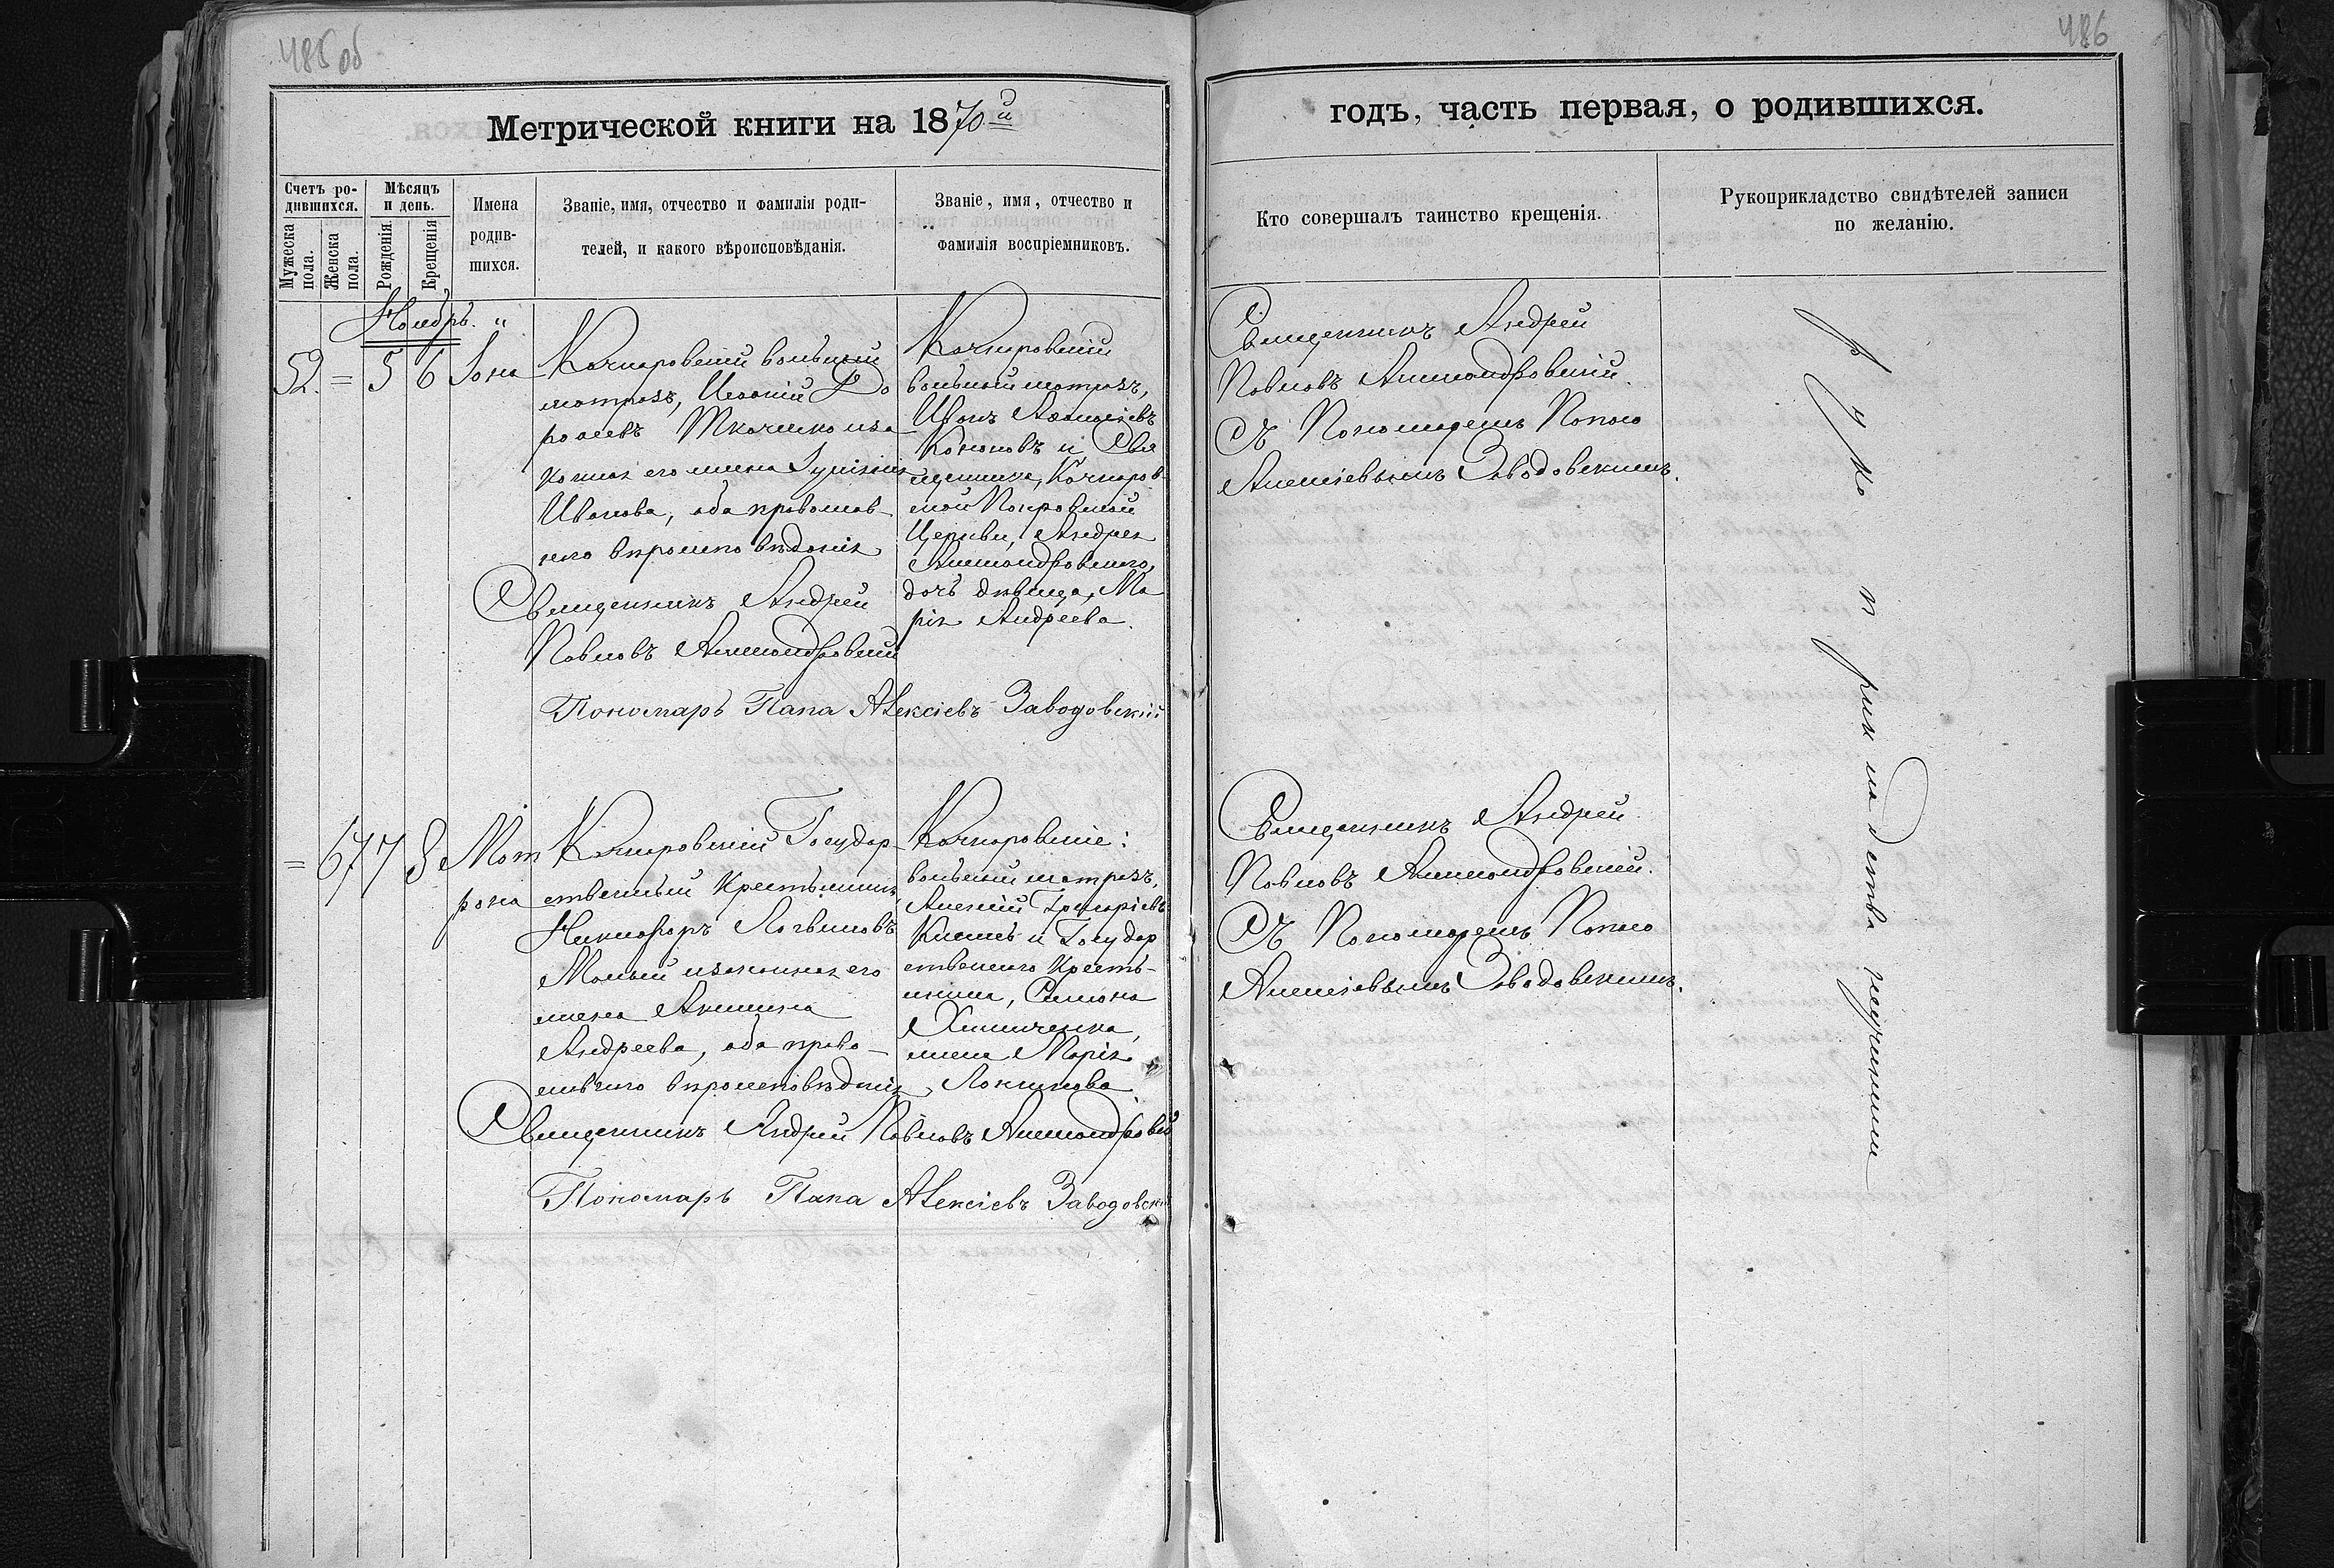 485 об
486
Метрической книги на 1870й
годъ, часть первая, о родившихся.
Счетъ ро-
дившихся.
Мужеска
пола.
Женска
пола.
Мѣсяцъ
и день.
Рожденія.
Крещенія
Имена
родив-
шихся.
Званіе, имя, отчество и фамилія роди-
телей, и какого вѣроисповѣданія.
Званіе, имя, отчество и
фамилія воспріемниковъ.
Кто совершалъ таинство крещенія.
Рукоприкладство свидѣтелей записи
по желанію.
Ноябрь. "
52. = 5 6 Іона
Качкаровскій вольный
матрозъ, Иоаній До
роѳеевъ Ткаченко иза
конная его жена
Иванова, оба православ-
наго вѣроисповѣданія
Священникъ Андрей
Павловъ Александровскій
Пономарь Папа Алексіевъ Заводовскій
Качкаровскій
вольный матрозъ,
Иванъ
Кононовъ и Свя
щенника, Качкаров-
ской Покровской
Церкви, Андрея
Александровскаго,
дочь дѣвица, Ма
рія Андреева.
Священникъ Андрей
Павловъ Александровскій.
Съ Пономаремъ Папою
Алексіевымъ Заводовскимъ.
= 67 7 8 Мат
рона
Качкаровскій Государ-
ственный Крестьянинъ,
Никифоръ Логвиновъ
Малый изаконная его
жена Акилина
Андреева, оба право-
славнаго вѣроисповѣданія
Священникъ Андрей Павловъ Александровскій
Пономарь Папа Алексіевъ Заводовскій
Качкаровскіе:
вольный матрозъ,
Алексій Григоріевъ
и Государ
ственнаго Кресть-
янина, Симона
жена Марія
Священникъ Андрей
Павловъ Александровскій.
Съ Пономаремъ Папою
Алексіевымъ Заводовскимъ.